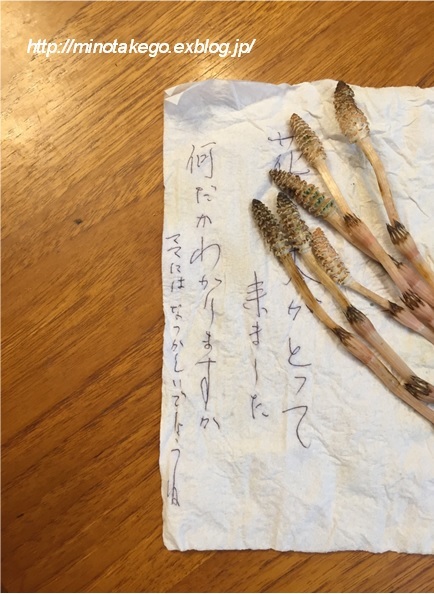 http://minotakego.exblog.jp/
花 とって
来ました
何だかわかりますか
ママには なつかしいでしょうね